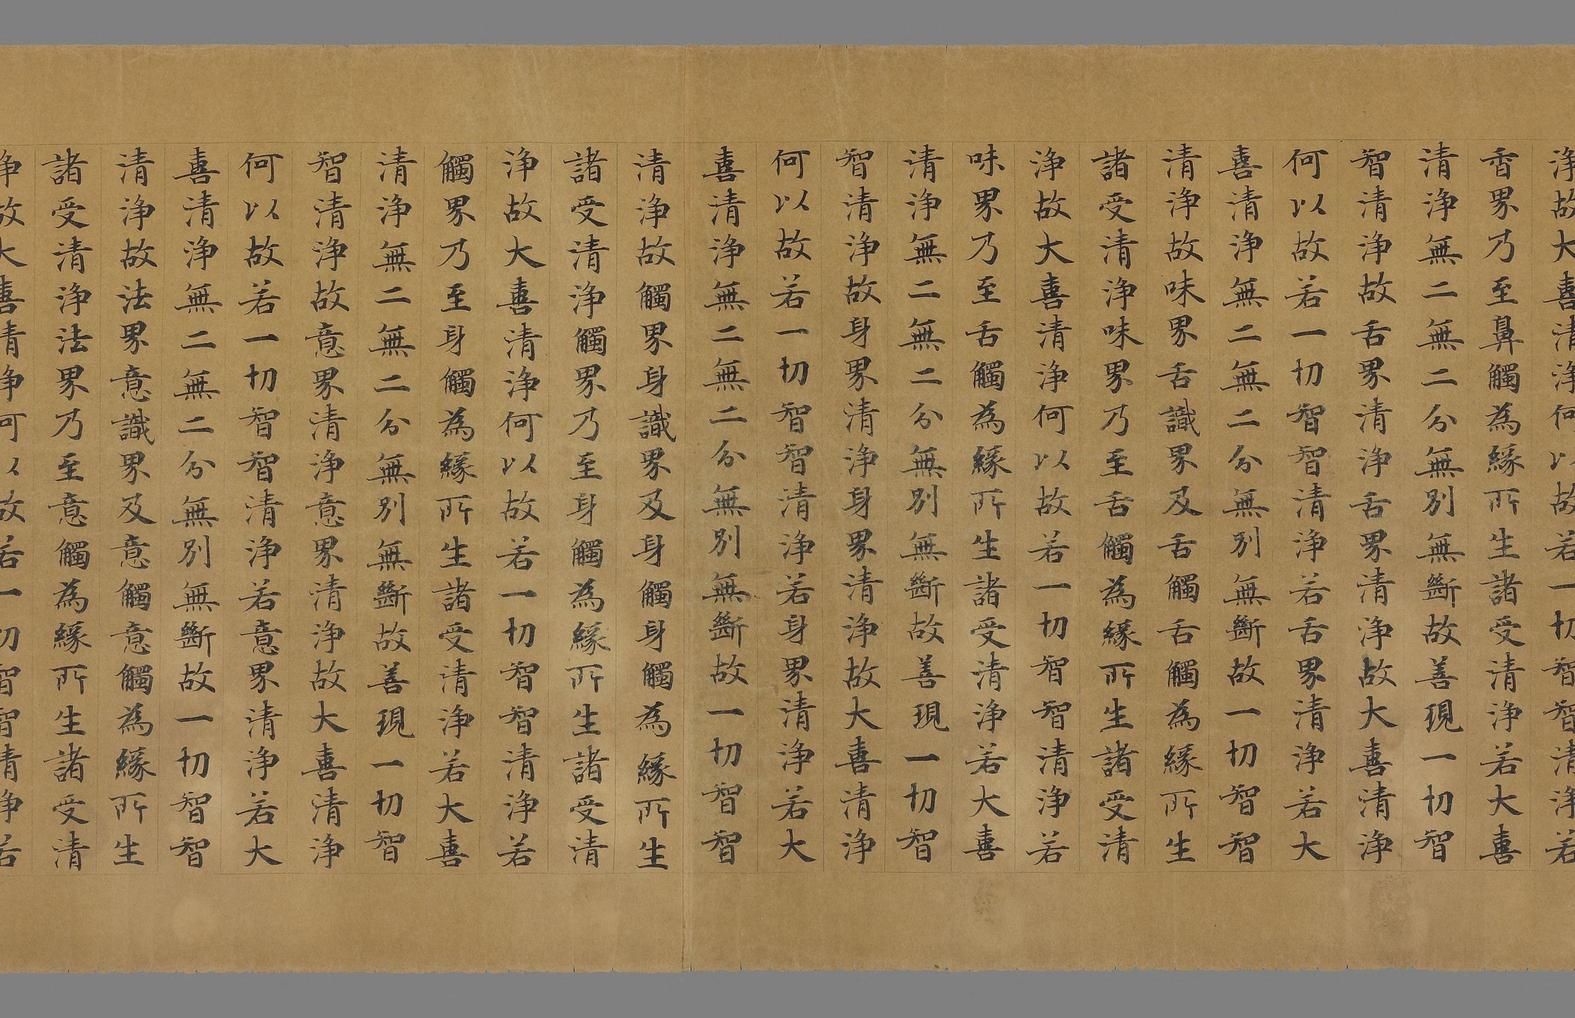 浄故大喜清浄何以故若一切智智清浄若
香界乃至鼻觸為緣所生諸受清浄若大喜
清浄無二無二分無別無斷故善現一切智
智清浄故舌界清浄舌界清浄故大喜清浄
何以故若一切智智清浄若舌界清浄若大
喜清浄無二無二分無別無斷故一切智智
清浄故味界舌識界及舌觸舌觸為緣所生
諸受清浄味界乃至舌觸為緣所生諸受清
浄故大喜清浄何以故若一切智智清浄若
味界乃至舌觸為緣所生諸受清浄若大喜
清浄無二無二分無別無斷故善現一切智
智清浄故身界清浄身界清浄故大喜清浄
何以故若一切智智清浄若身界清浄若大
喜清浄無二無二分無別無斷故一切智智
清浄故觸界身識界及身觸身觸為緣所生
諸受清浄觸界乃至身觸為緣所生諸受清
浄故大喜清浄何以故若一切智智清浄若
觸界乃至身觸為緣所生諸受清浄若大喜
清浄無二無二分無別無斷故善現一切智
智清浄故意界清浄意界清浄故大喜清浄
何以故若一切智智清浄若意界清浄若大
喜清浄無二無二分無別無斷故一切智智
清浄故法界意識界及意觸意觸為緣所生
諸受清浄法界乃至意觸為緣所生諸受清
浄故大喜清浄何以故若一切智智清浄若